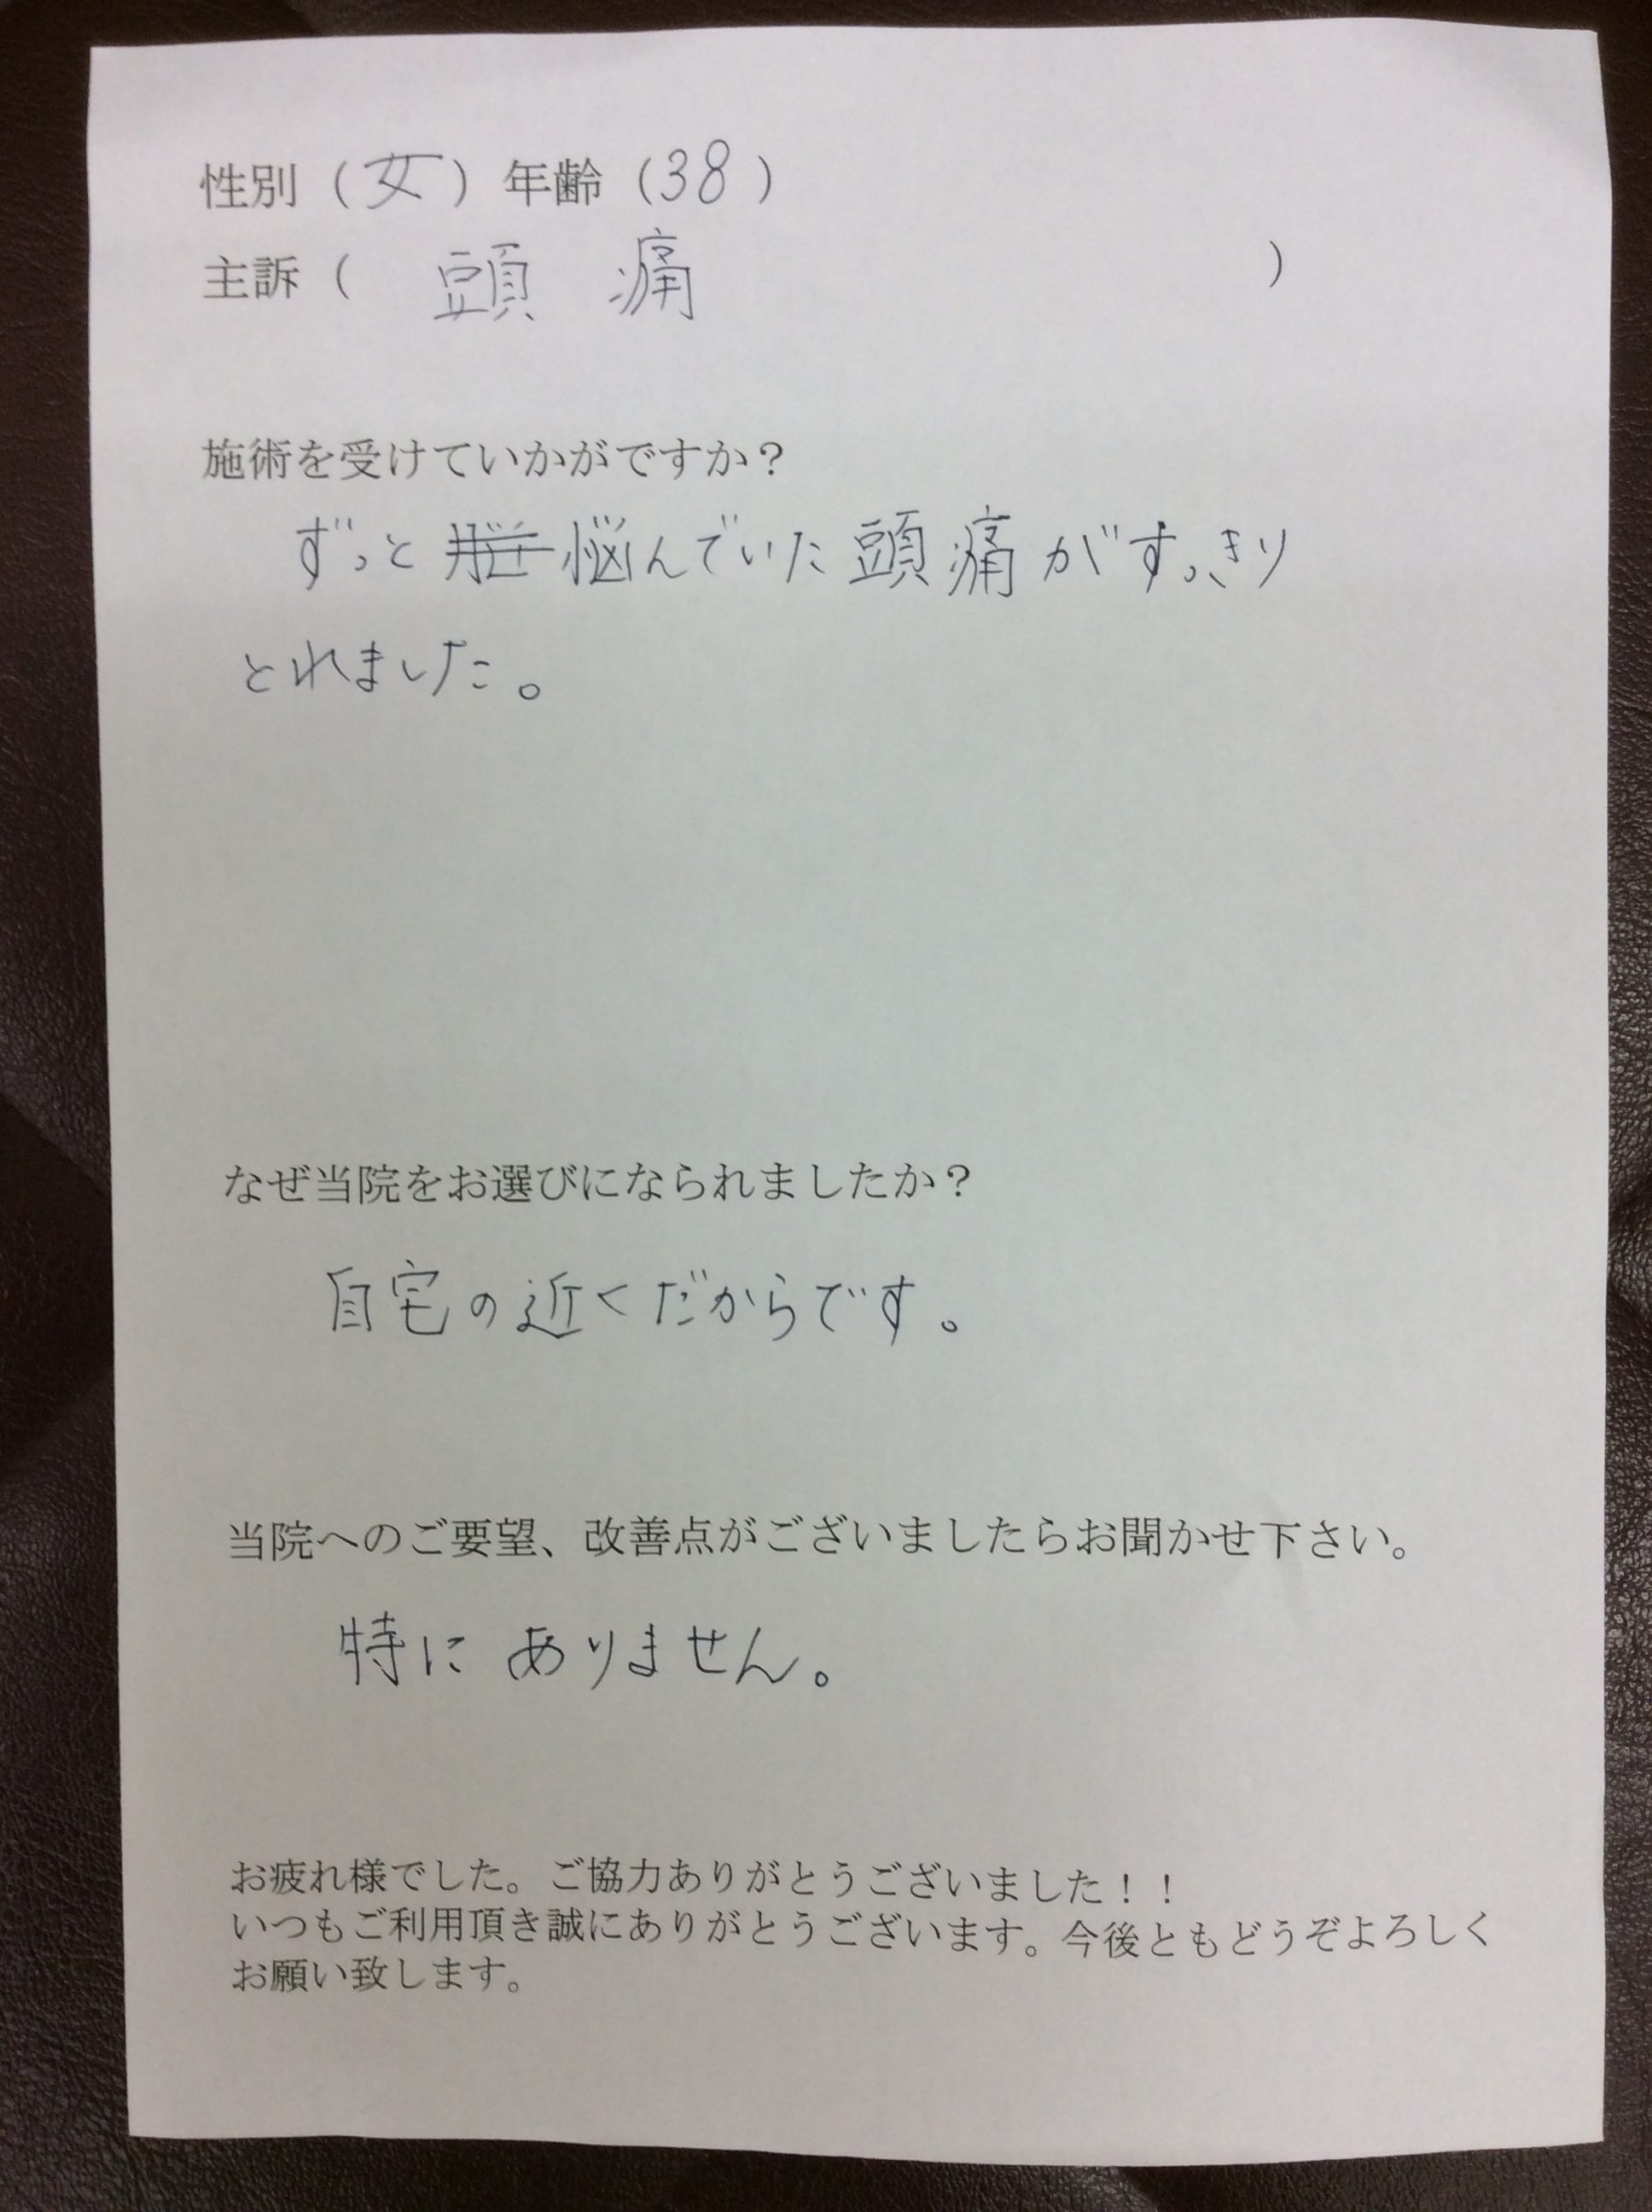 性別（女）年齢（38）
主訴（ 頭 痛 ）
施術を受けていかがですか？
ずっと 悩んでいた 頭痛がすっきり
とれました。
なぜ当院をお選びになられましたか？
自宅の近くだからです。
当院へのご要望、改善点がございましたらお聞かせ下さい。
特に ありません。
お疲れ様でした。ご協力ありがとうございました！！
いつもご利用頂き誠にありがとうございます。今後ともどうぞよろしく
お願い致します。